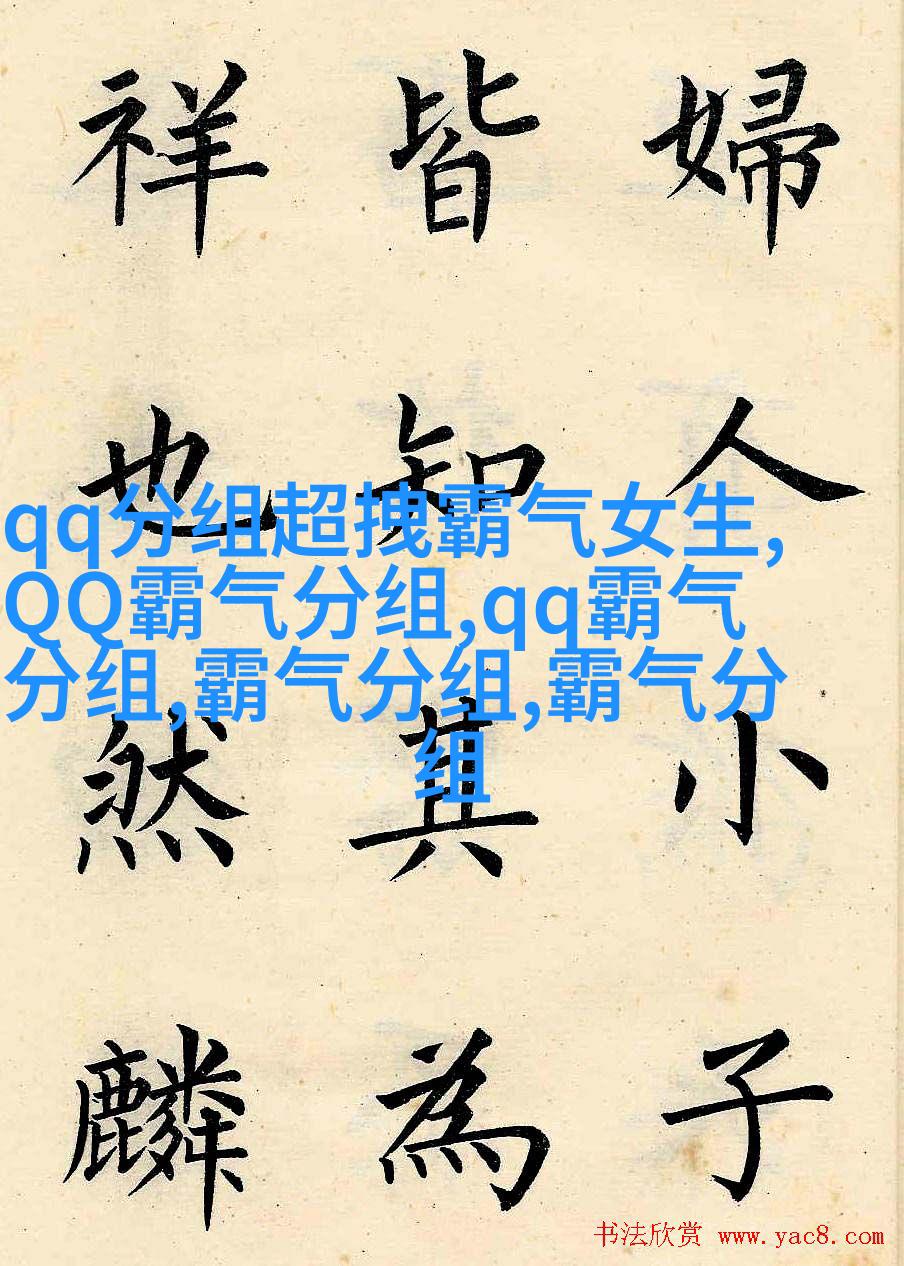 婦人小子
皆知其為
祥也然麟
qq分组超拽霸气女生,
QQ霸气分组,qq霸气
分组,霸气分组,霸气分
组
书法欣赏 www.yac8.com